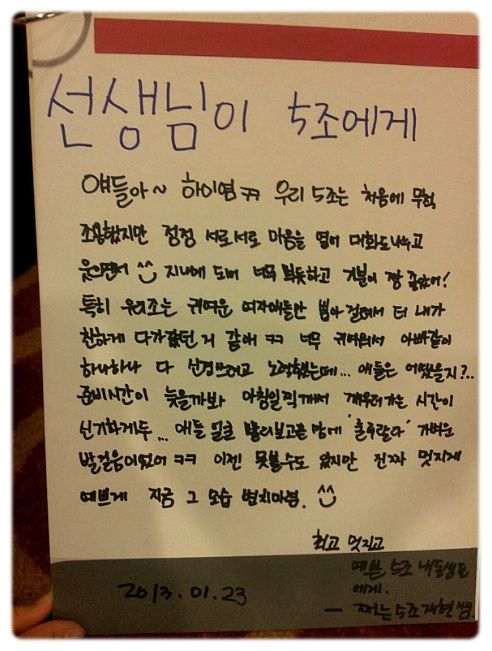 선생님이 5조에게
얘들아~ 하이염ㅋㅋ 우리 5조는 처음에 무척
조용했지만 점점 서로서로 마음을 열어 대화도 나누고
웃으면서 ^^ 지내에 되며 너무 뿌듯하고 기분이 짱 좋았어!
특히 우리조는 귀여운 여자애들만 뽑아 걸려서 더 내가
친하게 다가갔던 거 같애 ㅋㅋ 너무 귀여워서 아빠같이
하나하나 다 신경쓰려고 노력했는데... 애들은 어땠을지?..
준비시간이 늦을까봐 아침일찍깨서 깨우러가는 시간이
신기하게두... 애들 얼굴 빨리보고픈 맘에 '호루랄라' 가벼운
발걸음이었어 ㅋㅋ 이젠 못볼수도 있지만 진짜 멋지게
예쁘게 지금 그 모습 변치마렴. ^^
최고 멋지고
예쁜 5조 내동생들
에게.
2013.01.23
— 쩌는 5조 재현쌤.